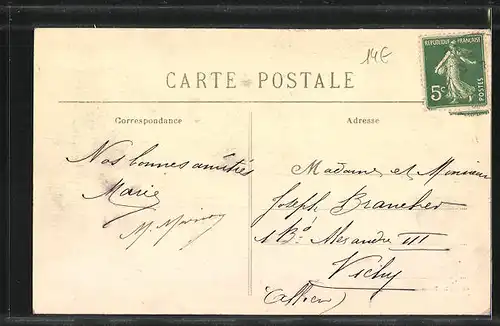 14€
REPUBLIQUE FRANÇAISE
5c
POSTES
CARTE POSTALE
Correspondance
Adresse
Nos bonnes amitiés
Marie
M.
Madame et Monsieur
Joseph Brancher
1 Bd Alexandre III
Vichy
(Allier)